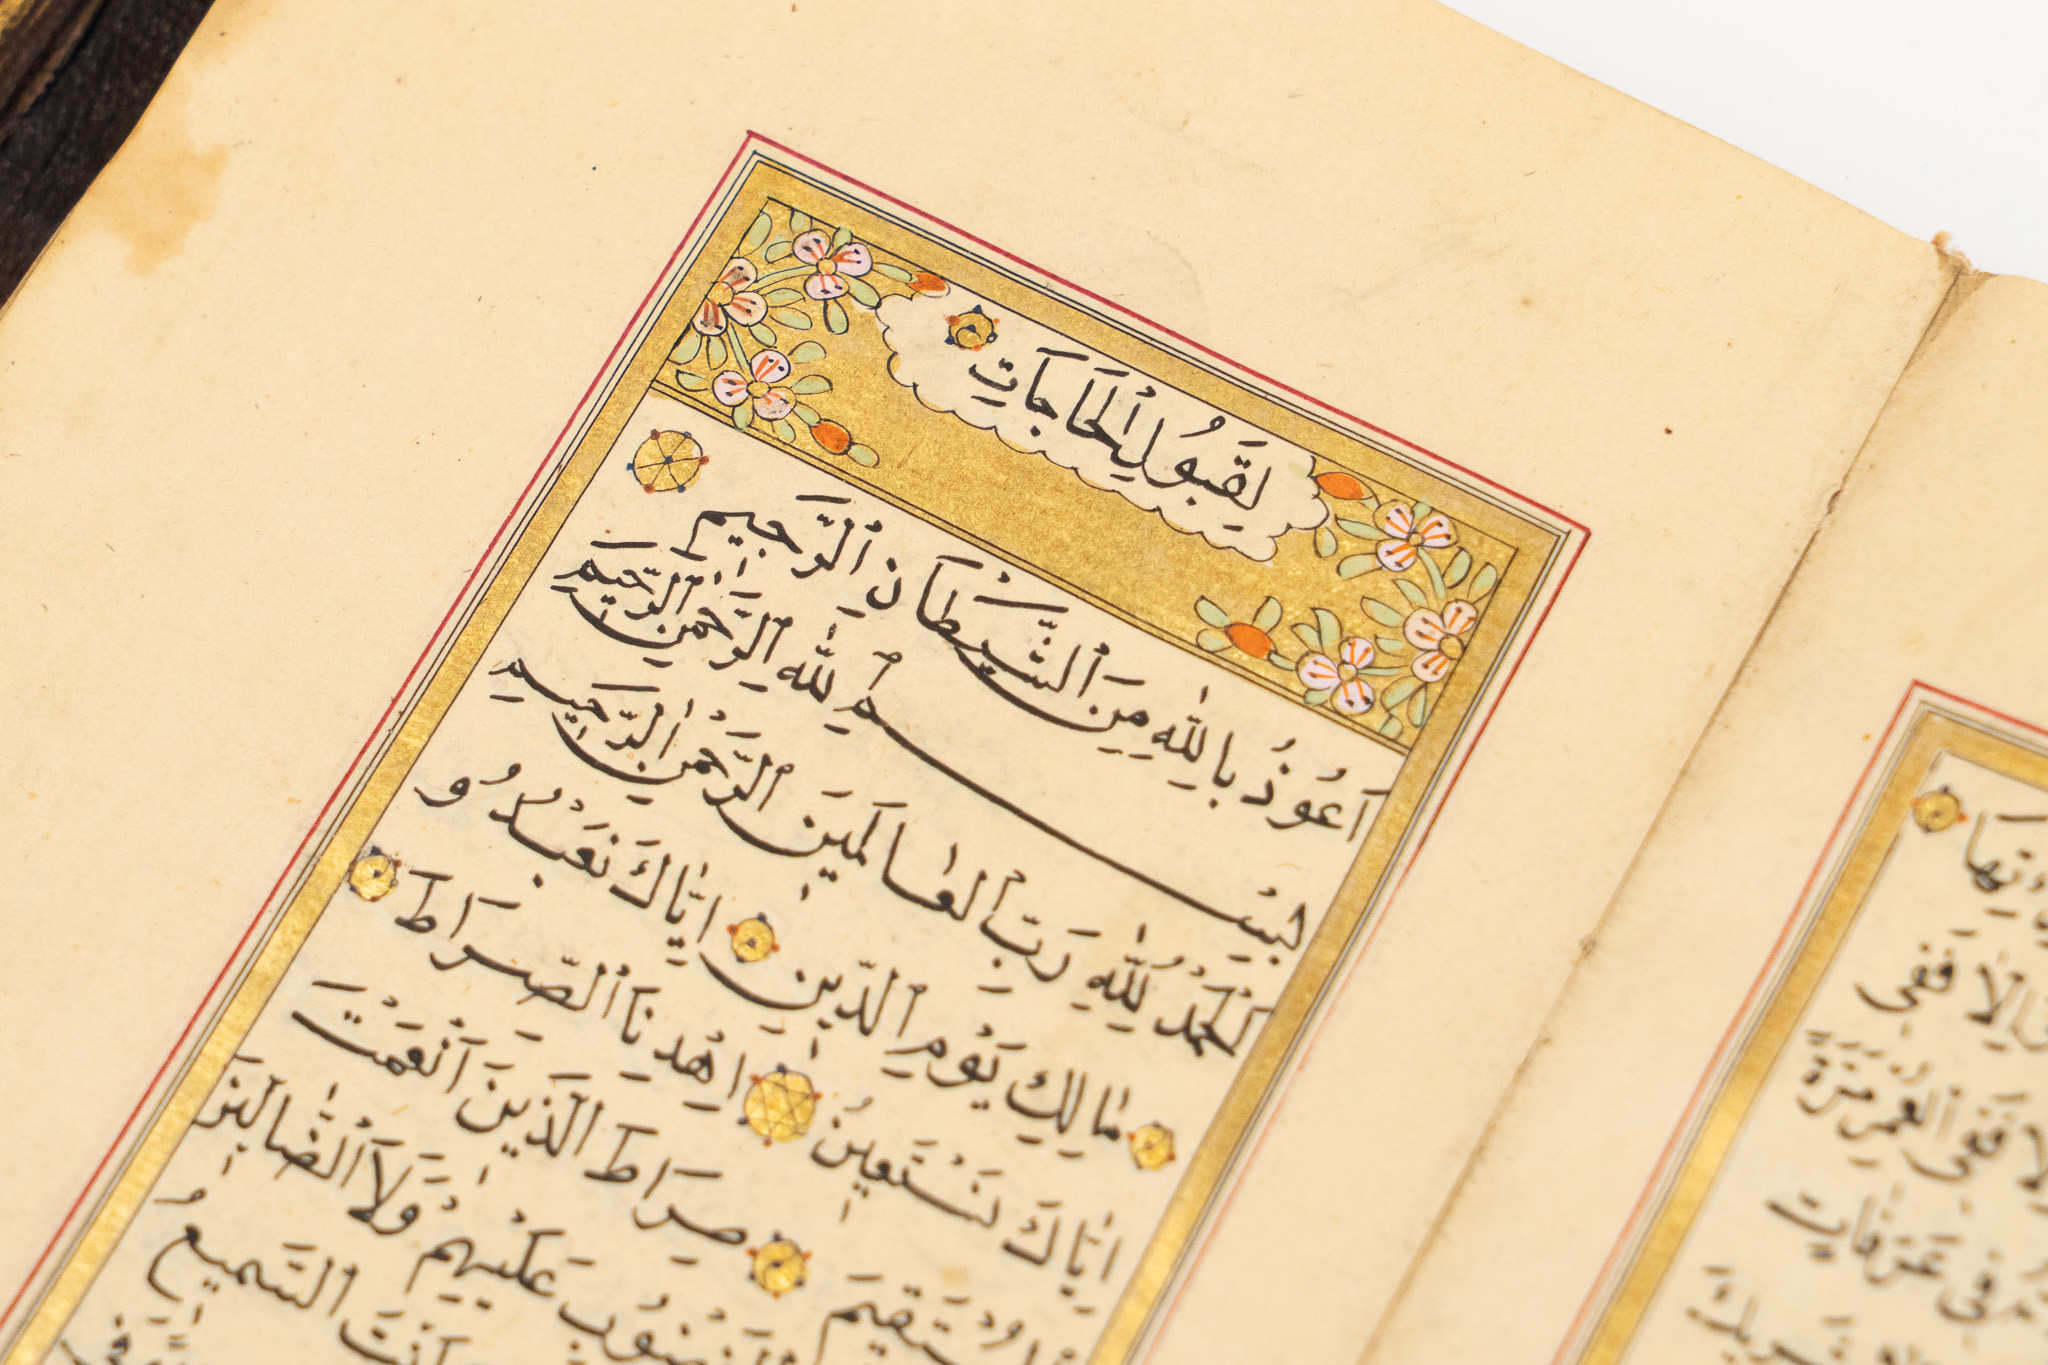 لِقَبُولِ الْحَاجَاتِ
اَعُوذُ بِاللّٰهِ مِنَ الشَّيْطَانِ الرَّجِيمِ
بِسْمِ اللّٰهِ الرَّحْمٰنِ الرَّحِيمِ
اَلْحَمْدُ لِلّٰهِ رَبِّ الْعٰالَمِينَ الرَّحْمٰنِ الرَّحِيمِ
مٰالِكِ يَوْمِ الدِّينِ اِيّٰاكَ نَعْبُدُ وَ
اِيّٰاكَ نَسْتَعِينُ اِهْدِنَا الصِّرَاطَ
الْمُسْتَقِيمَ صِرَاطَ الَّذِينَ اَنْعَمْتَ
عَلَيْهِمْ وَلَا الضّٰالِّينَ
اَنْتَ السَّمِيعُ
فَفِي
فَفِي الْعُمْرِ مَرَّةً
فِي عَرَفَاتٍ